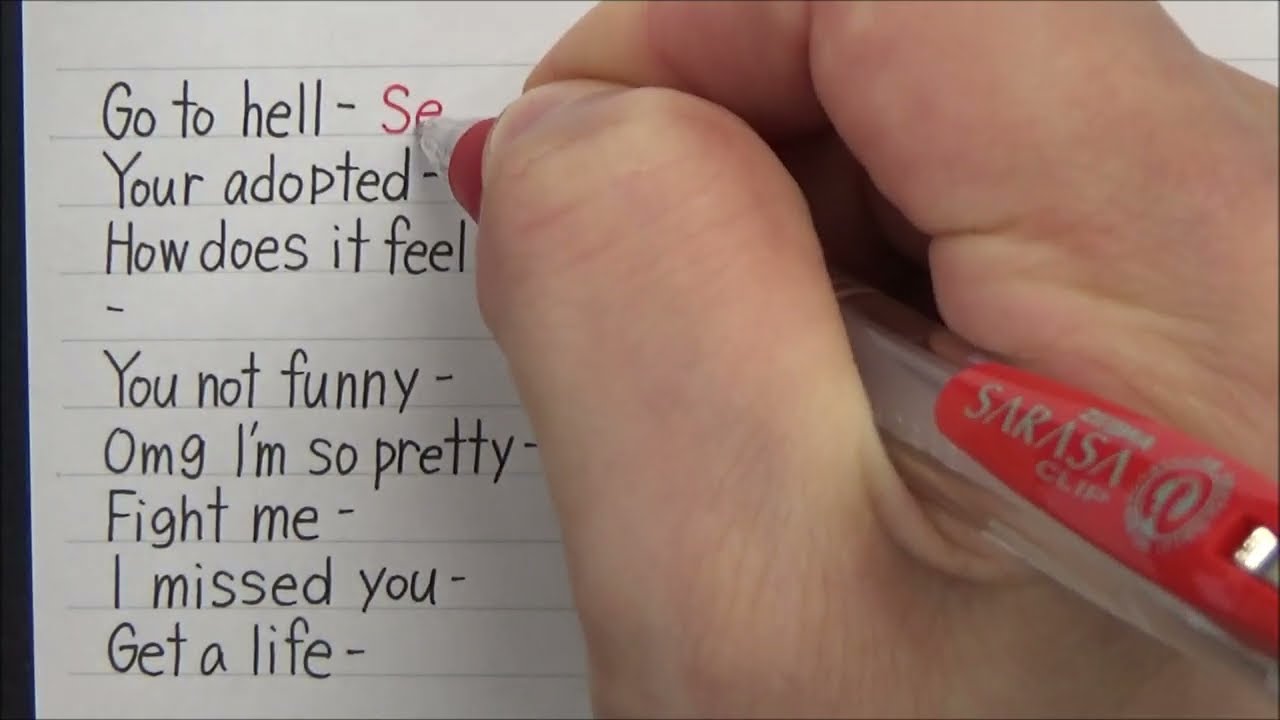 Go to hell - Se
Your adopted -
How does it feel
-
You not funny -
Omg I'm so pretty -
Fight me -
I missed you -
Get a life -
ZEBRA
SARASA
CLIP